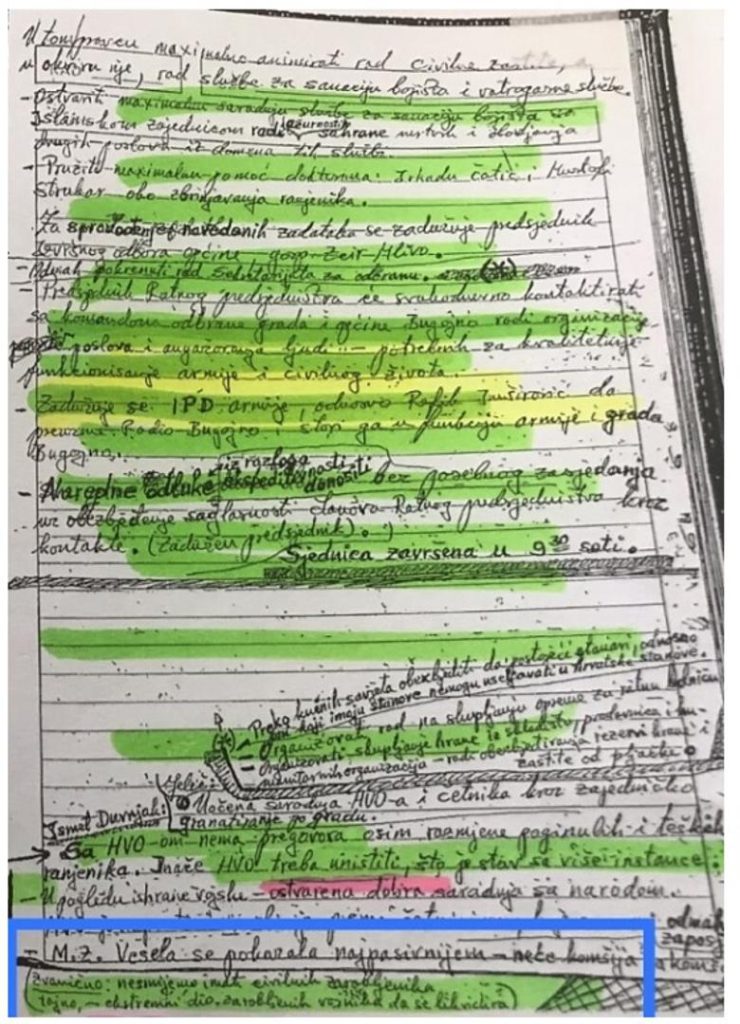 U tom pravcu maximalno animirati rad civilne zaštite, a
u okviru nje, rad službe za sanaciju bojišta i vatrogasne službe.
- Ostvariti maximalnu saradnju službe za sanaciju bojišta sa
Islamskom zajednicom radi ažurnosti sahrane mrtvih i obavljanja
drugih poslova iz domena tih službi.
- Pružiti maximalnu pomoć doktorima: Irhadu Čatić, Mustafi
Strukar oko zbrinjavanja ranjenika.
Za sprovođenje navedenih zadataka se zadužuje predsjednik
Izvršnog odbora općine gosp. Zeir Mlivo.
- Odmah pokrenuti rad Sekretarijata za odbranu.
- Predsjednik Ratnog predsjedništva će svakodnevno kontaktirati
sa komandom odbrane grada i općine Bugojno radi orginizacije
poslova i angažovanja ljudi - potrebnih za kvalitetnije
funkcionisanje armije i civilnog života.
- Zadužuje se IPD armije, odnosno Rafib da
preuzme Radio Bugojno i stavi ga u funkciju armije i grada
Bugojna.
- Naredne odluke iz razloga ekspeditivnosti donositi bez posebnog zasjedanja
uz obezbjeđenje saglasnosti članova Ratnog predsjedništva kroz
kontakte. (zadužen predsjednik).
Sjednica završena u 9 30 sati.
Preko kućnih savjeta obezbijediti da postojeći stanari, odnosno
oni koji imaju stanove nemogu useljavati u hrvatske stanove.
- Organizovati rad na skupljanju opreme za ratnu bolnicu
- Organizovati skupljanje hrane iz skladišta, prodavnica i hu-
manitarnih organizacija - radi obezbjeđivanja rezervi hrane i
zaštite od pljačke.
Uočena saradnja HVO-a i četnika kroz zajedničko
granatiranje po gradu.
Ismet Durmjak:
Sa HVO-om nema pregovora osim razmjene poginulih i teških
ranjenika. Inače HVO treba uništiti, što je stav se više instance.
- U pogledu ishrane vojske - ostvarena dobra saradnja sa narodom.
odmah
zaposj
- M.Z. Vesela se pokazala najpasivnijem - neće komšija na komš.
Zvanično: nesmijemo imati civilnih zarobljenika
Tajno, - ekstremni dio zarobljenih vojnika da se likvidira